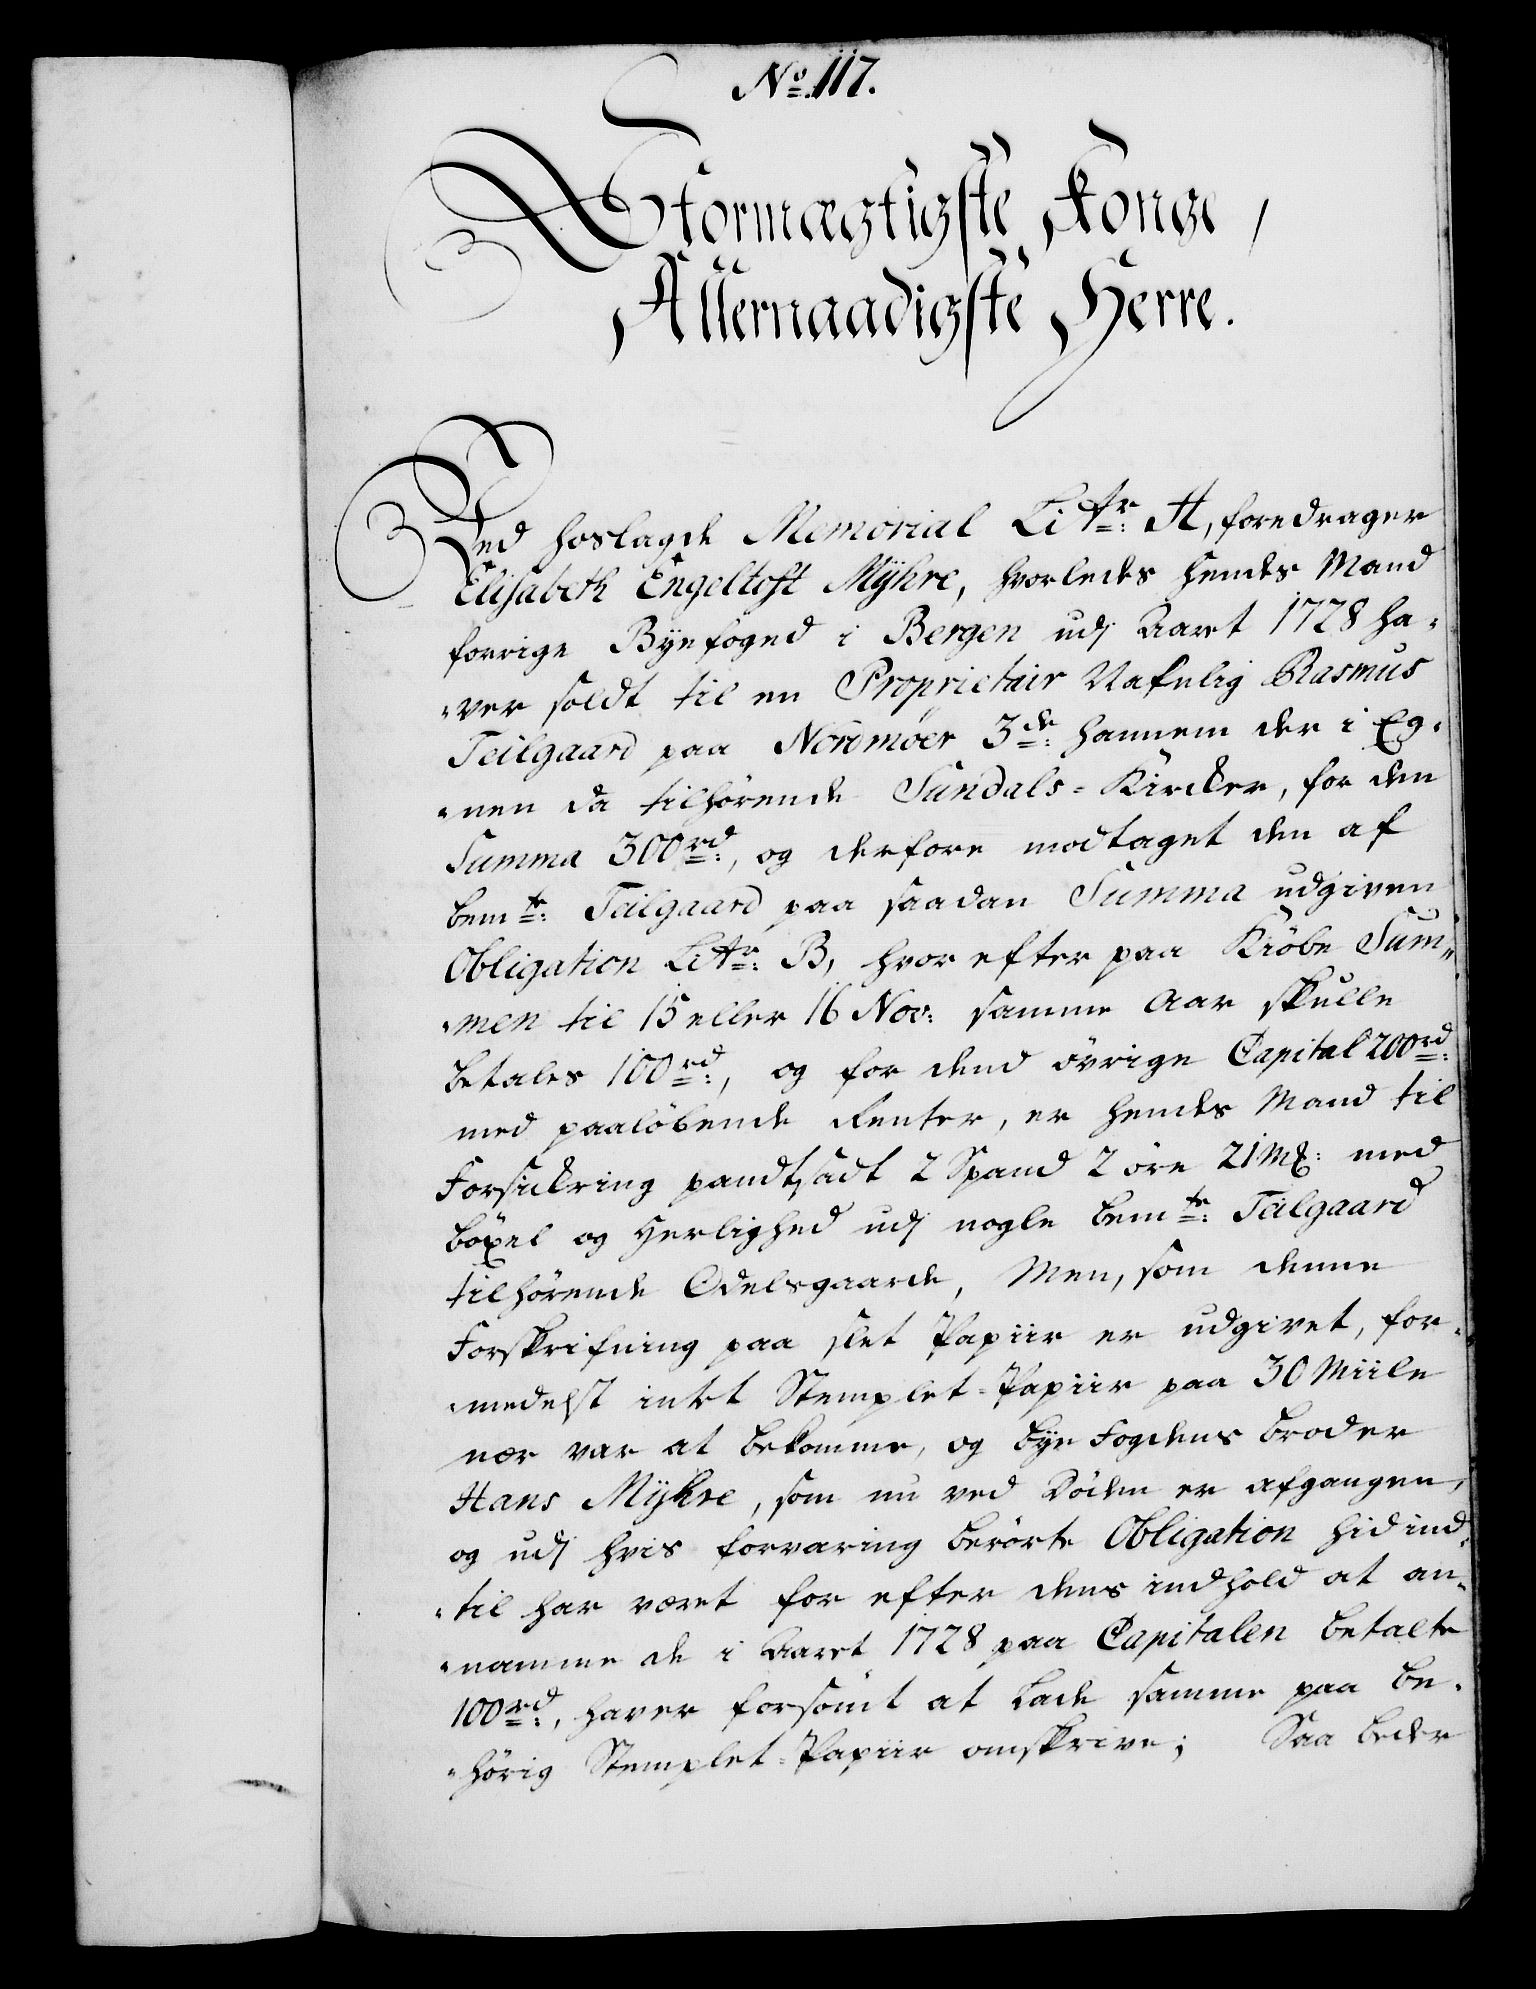 No. 117.
Stormægtigste Konge,
Allernaadigste Herre.
Ved hoslagde Memorial Litr: A, foredrager
Elisabeth Engeltoft Mÿhre, hvorledes hendes Mand
forrige Byefoged i Bergen udj Aaret 1728 ha-
-ver soldt til en Proprietair Nafnlig Rasmus
Teilgaard paa Nordmøer 3de: hannem der i Eg-
-nen da tilhørende Sundals-Kircker, for den
Summa 300 rd:, og derfore modtaget den af
bemte: Teilgaard paa saadan Summa udgiven
Obligation Litr: B, hvor efter paa Kiöbe Sum-
-men til 15 eller 16 Nov: samme Aar skulle
betales 100 rd:, og for dend övrige Capital 200 rd:
med paalöbende Renter, er hendes Mand til
Forsickring pandtsadt 2 Spand 2 öre 21 Mk: med
böxel og Herlighed udj nogle bemte: Teilgaard
tilhörende Odelsgaarde, Men, som denne
Forskrifning paa slet Papiir er udgivet, for-
-medelst intet Stemplet-Papiir paa 30 Miile
nær var at bekomme, og Bÿe Fogdens Broder
Hans Mÿhre, som nu ved Döden er afgangen,
og udj hvis forvaring berörte Obligation hid ind-
-til har været for efter dens indhold at an-
-namme de i Aaret 1728 paa Capitalen betalte
100 rd:, haver forsömt at lade samme paa be-
-hörig Stemplet-Papiir omskrive; Saa beder